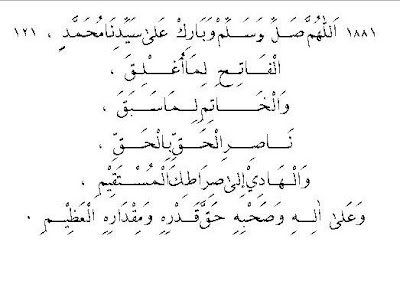 ١٨٨١ اَللّٰهُمَّ صَلِّ وَسَلِّمْ وَبَارِكْ عَلٰى سَيِّدِنَا مُحَمَّدٍ ، ١٢١
الْفَاتِحِ لِمَا أُغْلِقَ ،
وَالْخَاتِمِ لِمَا سَبَقَ ،
نَاصِرِ الْحَقِّ بِالْحَقِّ ،
وَالْهَادِيْ إِلىٰ صِرَاطِكَ الْمُسْتَقِيْمِ ،
وَعَلىٰ اٰلِهِ وَصَحْبِهِ حَقَّ قَدْرِهِ وَمِقْدَارِهِ الْعَظِيْمِ .